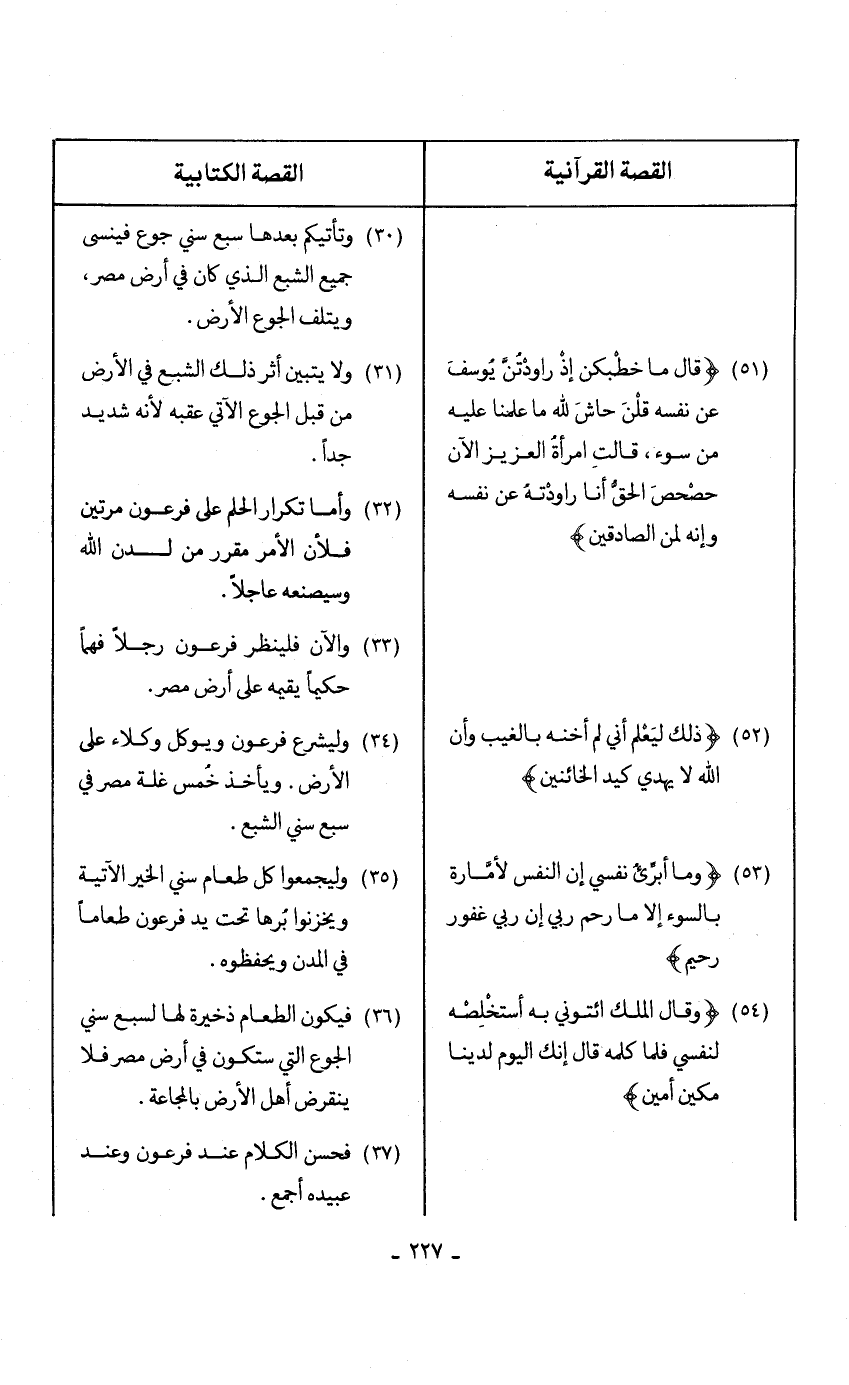 القصة القرآنية
(٥١) ﴿ قال ما خطْبكن إذْ راودْتُنَّ يُوسفَ
عن نفسه قلْنَ حاشَ لله ما علمنا عليه
من سوء ، قالتِ امرأةُ العزيز الآن
حصْحصَ الحقُّ أنا راودْتهُ عن نفسه
وإنه لمن الصادقين ﴾
(٥٢) ﴿ ذلك ليَعْلم أني لم أخنه بالغيب وأن
الله لا يهدي كيد الخائنين ﴾
(٥٣) ﴿ وما أبرِّئُ نفسي إن النفس لأمَّارة
بالسوء إلا ما رحم ربي إن ربي غفور
رحيم ﴾
(٥٤) ﴿ وقال الملك ائتوني به أستخْلِصْه
لنفسي فلما كلمه قال إنك اليوم لدينا
مكين أمين ﴾
القصة الكتابية
(٣٠) وتأتيكم بعدها سبع سني جوع فينسى
جميع الشبع الذي كان في أرض مصر ،
ويتلف الجوع الأرض .
(٣١) ولا يتبين أثر ذلك الشبع في الأرض
من قبل الجوع الآتي عقبه لأنه شديد
جداً .
(٣٢) وأما تكرار الحلم على فرعون مرتين
فلأن الأمر مقرر من لدن الله
وسيصنعه عاجلاً .
(٣٣) والآن فلينظر فرعون رجلاً فهماً
حكيماً يقيمه على أرض مصر .
(٣٤) وليشرع فرعون ويوكل وكلاء على
الأرض . ويأخذ خُمس غلة مصر في
سبع سني الشبع .
(٣٥) وليجمعوا كل طعام سني الخير الآتية
ويخزنوا بُرها تحت يد فرعون طعاماً
في المدن ويحفظوه .
(٣٦) فيكون الطعام ذخيرة لها لسبع سني
الجوع التي ستكون في أرض مصر فلا
ينقرض أهل الأرض بالمجاعة .
(٣٧) فحسن الكلام عند فرعون وعند
عبيده أجمع .
- ٢٢٧ -